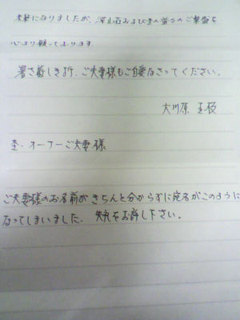 末筆になりましたが、
のご多幸を
心より願っております
暑さ厳しき折、ご夫妻様もご自愛なさってください。
大川原
オーナーご夫妻様
ご夫妻様のお名前がきちんと分からずに宛名がこのように
なってしまいました。失礼をお許し下さい。